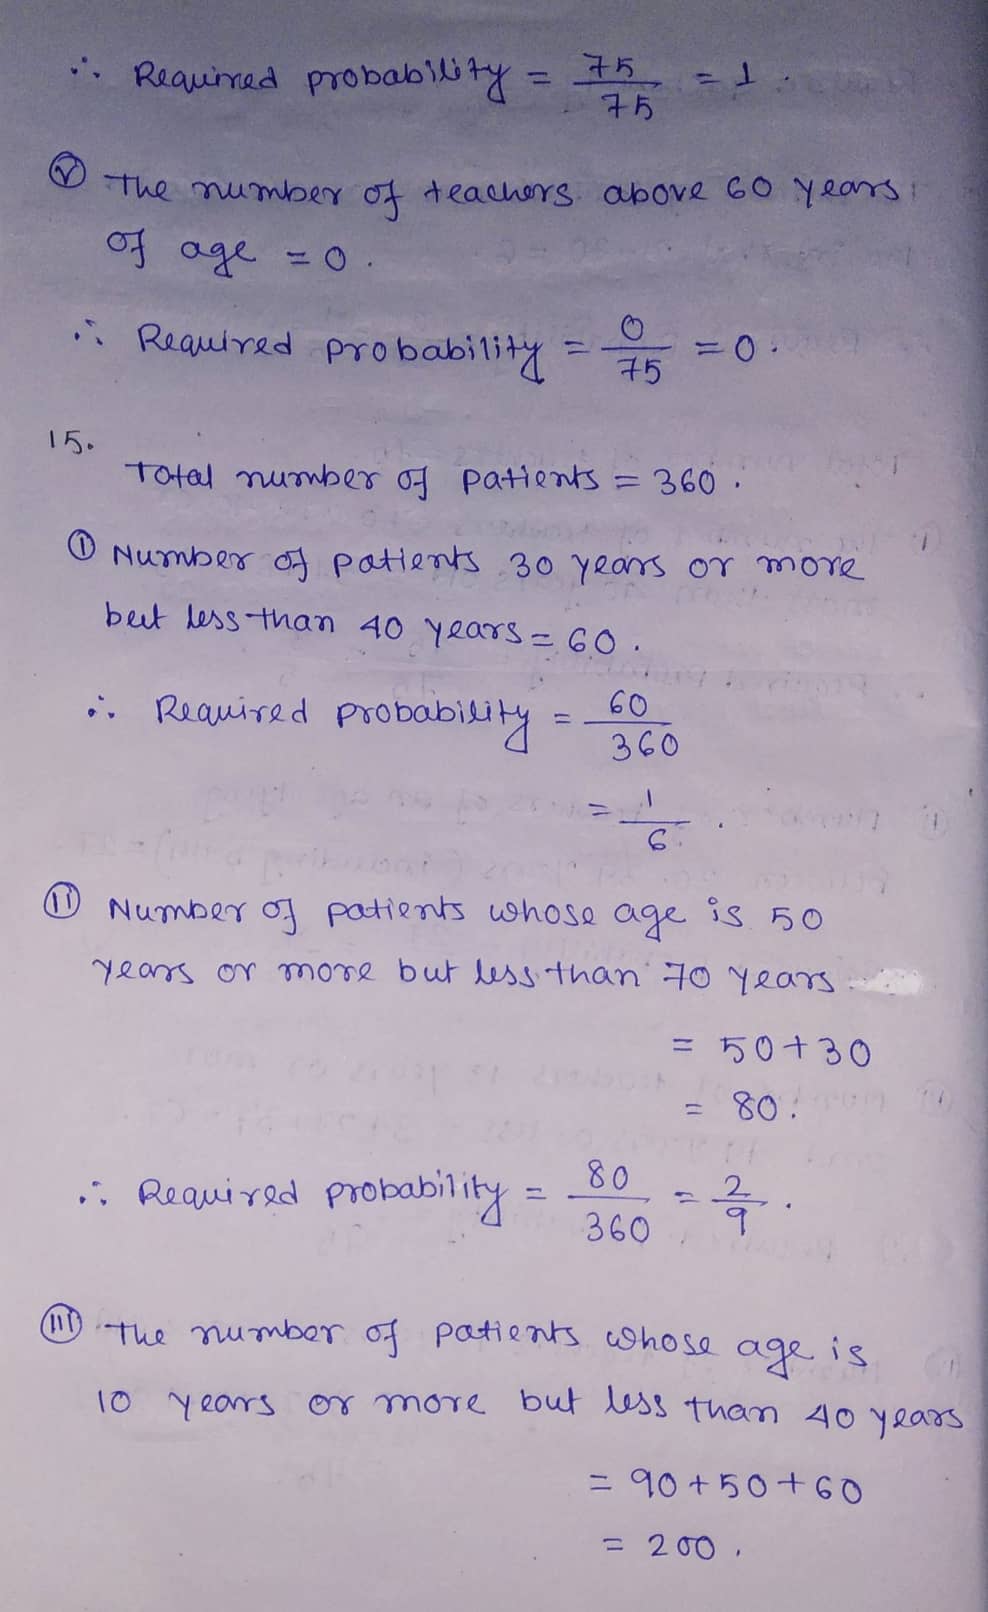 ∴ Required probability = 75/75 = 1.
(v) The number of teachers above 60 years
of age = 0.
∴ Required probability = 0/75 = 0.
15.
Total number of patients = 360.
(i) Number of patients 30 years or more
but less than 40 years = 60.
∴ Required probability = 60/360
= 1/6.
(ii) Number of patients whose age is 50
years or more but less than 70 years
= 50+30
= 80.
∴ Required probability = 80/360 = 2/9.
(iii) The number of patients whose age is
10 years or more but less than 40 years
= 90+50+60
= 200.